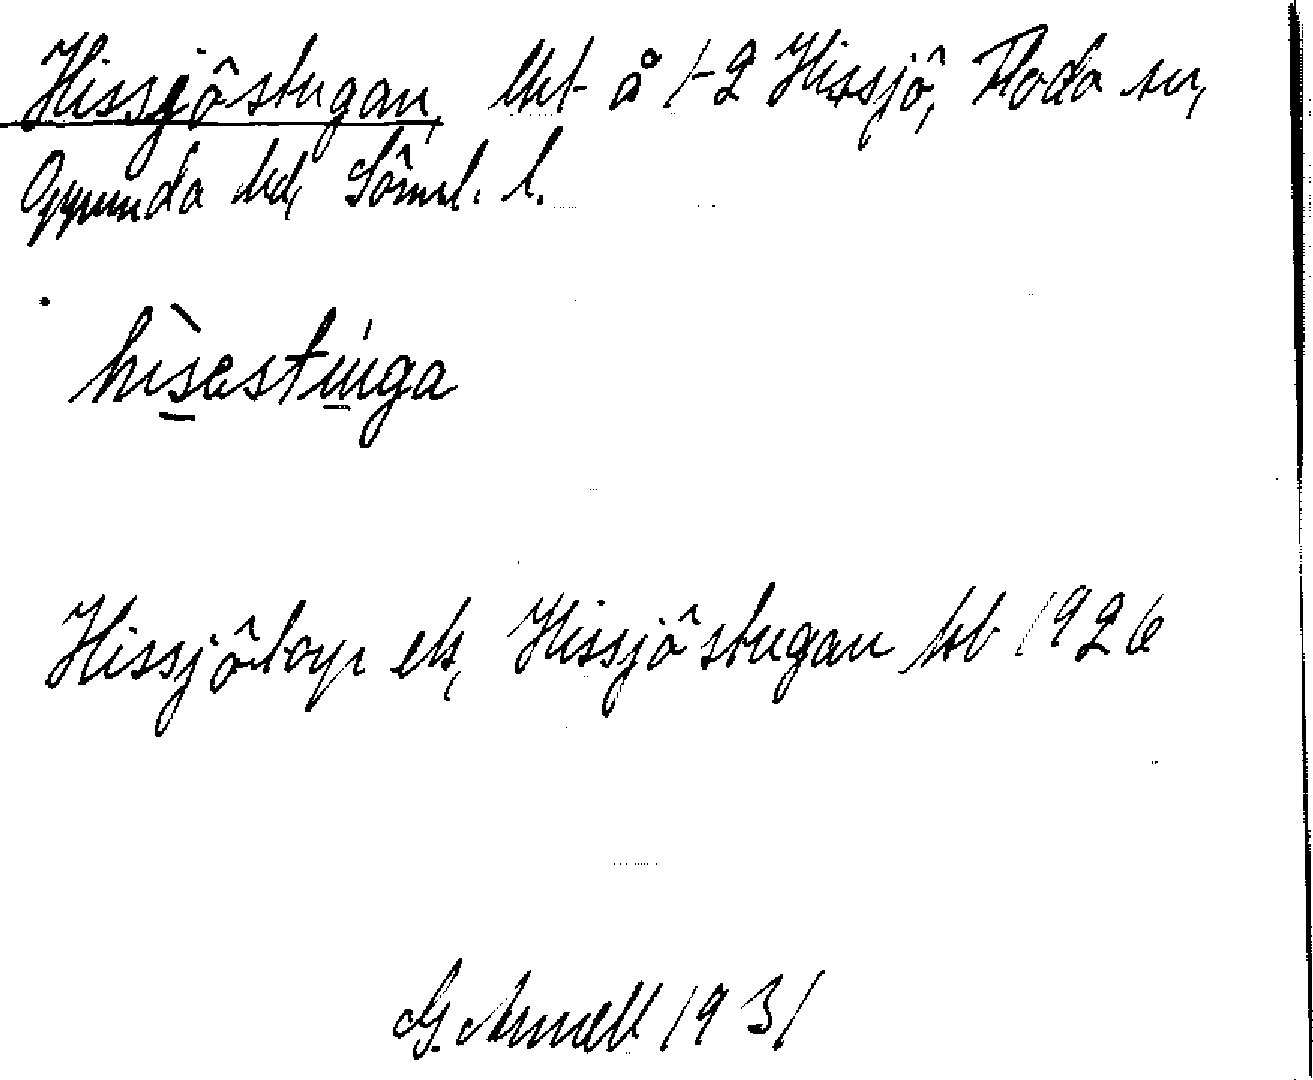 Hissjöstugan, lht å 1-2 Hissjö, Floda sn,
Oppunda hd, Söml. l.
hìsestu̇ga
Hissjötorp el., Hissjöstugan kb 1926
G. Arnell 1931